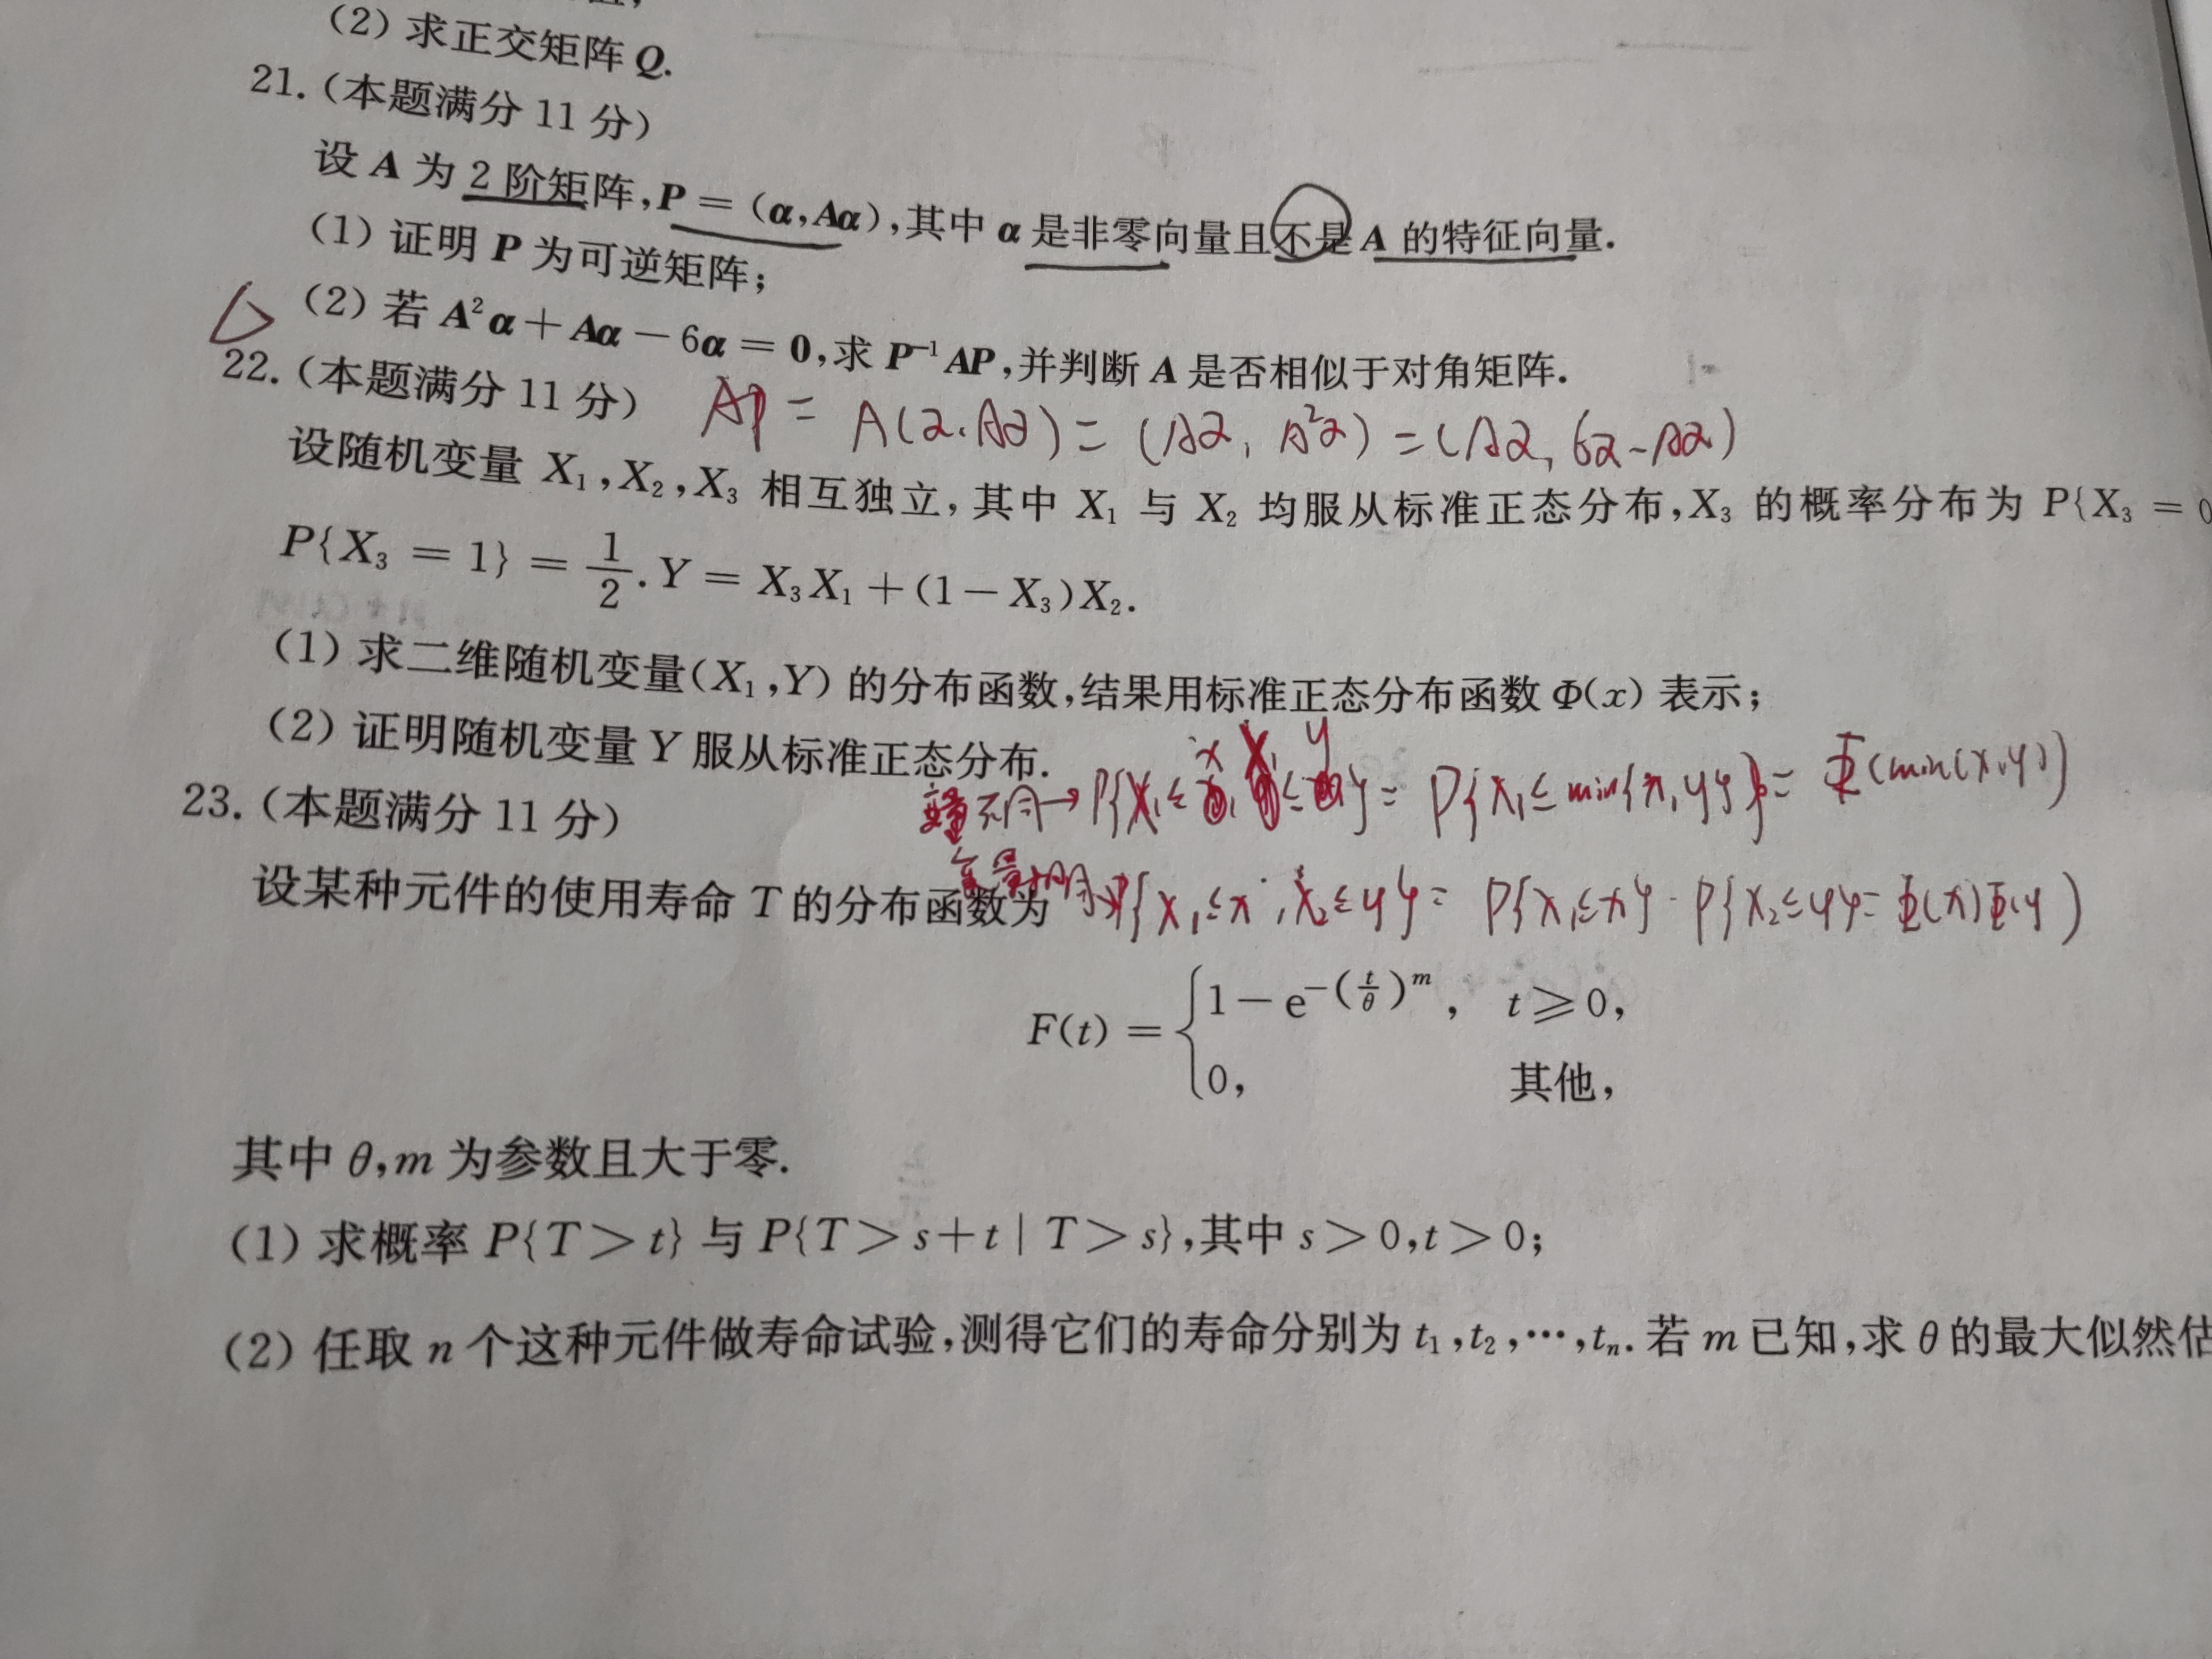 (2) 求正交矩阵 Q.
21. (本题满分 11 分)
设 A 为 2 阶矩阵,P = (α,Aα),其中 α 是非零向量且不是 A 的特征向量.
(1) 证明 P 为可逆矩阵;
(2) 若 A²α + Aα − 6α = 0,求 P⁻¹AP,并判断 A 是否相似于对角矩阵.
22. (本题满分 11 分)
AP = A(α, Aα) = (Aα, A²α) = (Aα, 6α−Aα)
设随机变量 X₁,X₂,X₃ 相互独立,其中 X₁ 与 X₂ 均服从标准正态分布,X₃ 的概率分布为 P{X₃ = 0
P{X₃ = 1} = 1/2. Y = X₃X₁ + (1 − X₃)X₂.
(1) 求二维随机变量(X₁,Y) 的分布函数,结果用标准正态分布函数 Φ(x) 表示;
(2) 证明随机变量 Y 服从标准正态分布.
→ P{X₁≤x, X₁≤y} = P{X₁≤min{x,y}} = Φ(min(x,y))
23. (本题满分 11 分)
设某种元件的使用寿命 T 的分布函数为
P{X₁≤x, X₂≤y} = P{X₁≤x}·P{X₂≤y} = Φ(x)Φ(y)
F(t) = { 1 − e^−(t/θ)^m, t ⩾ 0,
0, 其他,
其中 θ,m 为参数且大于零.
(1) 求概率 P{T > t} 与 P{T > s + t | T > s},其中 s > 0,t > 0;
(2) 任取 n 个这种元件做寿命试验,测得它们的寿命分别为 t₁,t₂,…,tₙ. 若 m 已知,求 θ 的最大似然估